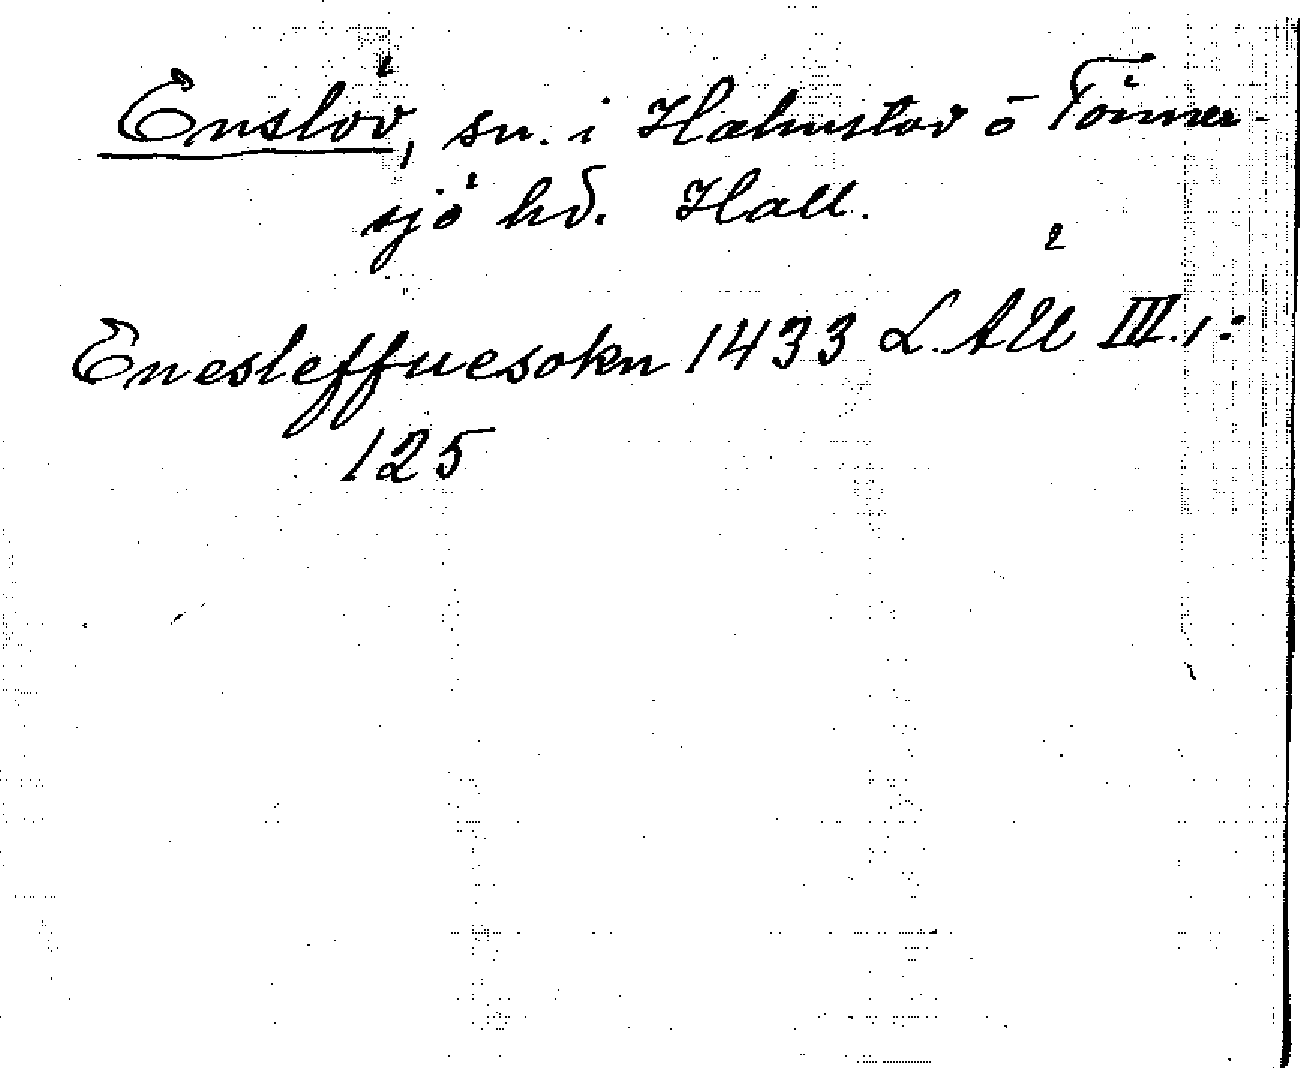 Enslöv, sn. i Halmstad o Tönner-
sjö hd. Hall.
Enesleffuesokn 1433 L. AU2 III.1:
125